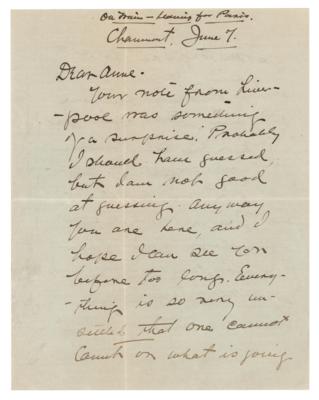 On Train - Leaving for Paris.
Chaumont, June 7.
Dear Anne -
Your note from Liver-
-pool was something
of a surprise. Probably
I should have guessed,
but I am not good
at guessing. Anyway
you are here, and I
hope I can see you
before too long. Every-
-thing is so very un-
settled that one cannot
count on what is going